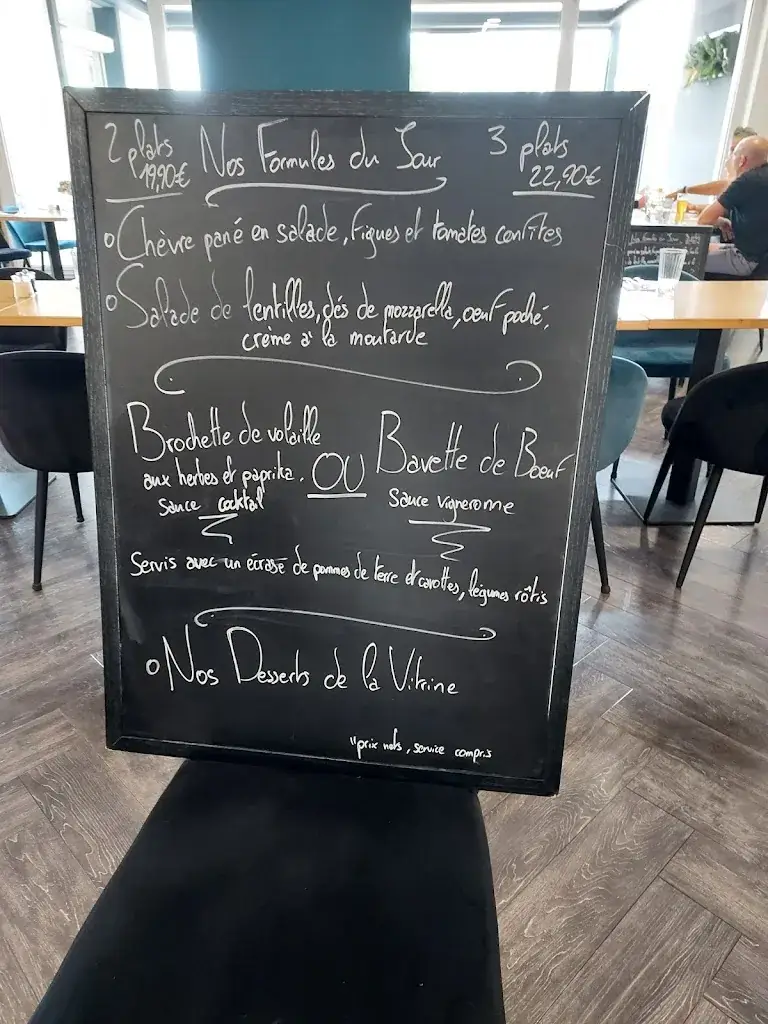 2 plats
19,90€
Nos Formules du Jour
3 plats
22,90€
o Chèvre pané en salade, figues et tomates confites
o Salade de lentilles, dés de mozzarella, oeuf poché,
crème à la moutarde
Brochette de volaille
aux herbes et paprika.
sauce cocktail
OU
Bavette de Boeuf
sauce vigneronne
Servis avec un écrasé de pommes de terre et carottes, légumes rôtis
o Nos Desserts de la Vitrine
"prix nets, service compris